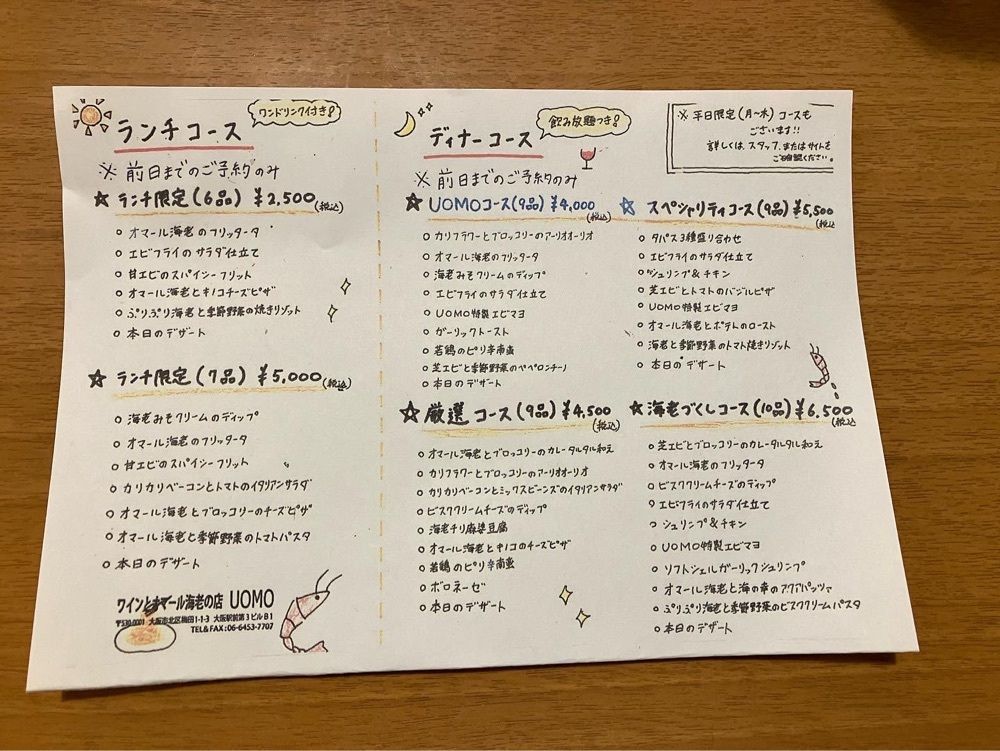 ランチコース
ワンドリンク付き!
※前日までのご予約のみ
☆ランチ限定(6品) ¥2,500(税込)
○オマール海老のフリッタータ
○エビフライのサラダ仕立て
○甘エビのスパイシーフリット
○オマール海老とキノコチーズピザ
○ぷりぷり海老と季節野菜の焼きリゾット
○本日のデザート
☆ランチ限定(7品) ¥5,000(税込)
○海老みそクリームのディップ
○オマール海老のフリッタータ
○甘エビのスパイシーフリット
○カリカリベーコンとトマトのイタリアンサラダ
○オマール海老とブロッコリーのチーズピザ
○オマール海老と季節野菜のトマトパスタ
○本日のデザート
ワインとオマール海老の店 UOMO
〒530-0001 大阪市北区梅田1-1-3 大阪駅前第3ビルB1
TEL&FAX:06-6453-7707
ディナーコース
飲み放題つき!
※前日までのご予約のみ
☆UOMOコース(9品) ¥4,000(税込)
○カリフラワーとブロッコリーのアーリオオーリオ
○オマール海老のフリッタータ
○海老みそクリームのディップ
○エビフライのサラダ仕立て
○UOMO特製エビマヨ
○ガーリックトースト
○若鶏のピリ辛南蛮
○芝エビと季節野菜のペペロンチーノ
○本日のデザート
☆厳選コース(9品) ¥4,500(税込)
○オマール海老とブロッコリーのカレータルタル和え
○カリフラワーとブロッコリーのアーリオオーリオ
○カリカリベーコンとミックスビーンズのイタリアンサラダ
○ビスククリームチーズのディップ
○海老チリ麻婆豆腐
○オマール海老とキノコのチーズピザ
○若鶏のピリ辛南蛮
○ボロネーゼ
○本日のデザート
※平日限定(月~水)コースも
ございます!!
詳しくは、スタッフ、またはサイトを
ご確認ください。
☆スペシャリティコース(9品) ¥5,500(税込)
○タパス3種盛り合わせ
○エビフライのサラダ仕立て
○シュリンプ&チキン
○芝エビとトマトのバジルピザ
○UOMO特製エビマヨ
○オマール海老とポテトのロースト
○海老と季節野菜のトマト焼きリゾット
○本日のデザート
☆海老づくしコース(10品) ¥6,500(税込)
○芝エビとブロッコリーのカレータルタル和え
○オマール海老のフリッタータ
○ビスククリームチーズのディップ
○エビフライのサラダ仕立て
○シュリンプ&チキン
○UOMO特製エビマヨ
○ソフトシェルガーリックシュリンプ
○オマール海老と海の幸のアクアパッツァ
○ぷりぷり海老と季節野菜のビスククリームパスタ
○本日のデザート